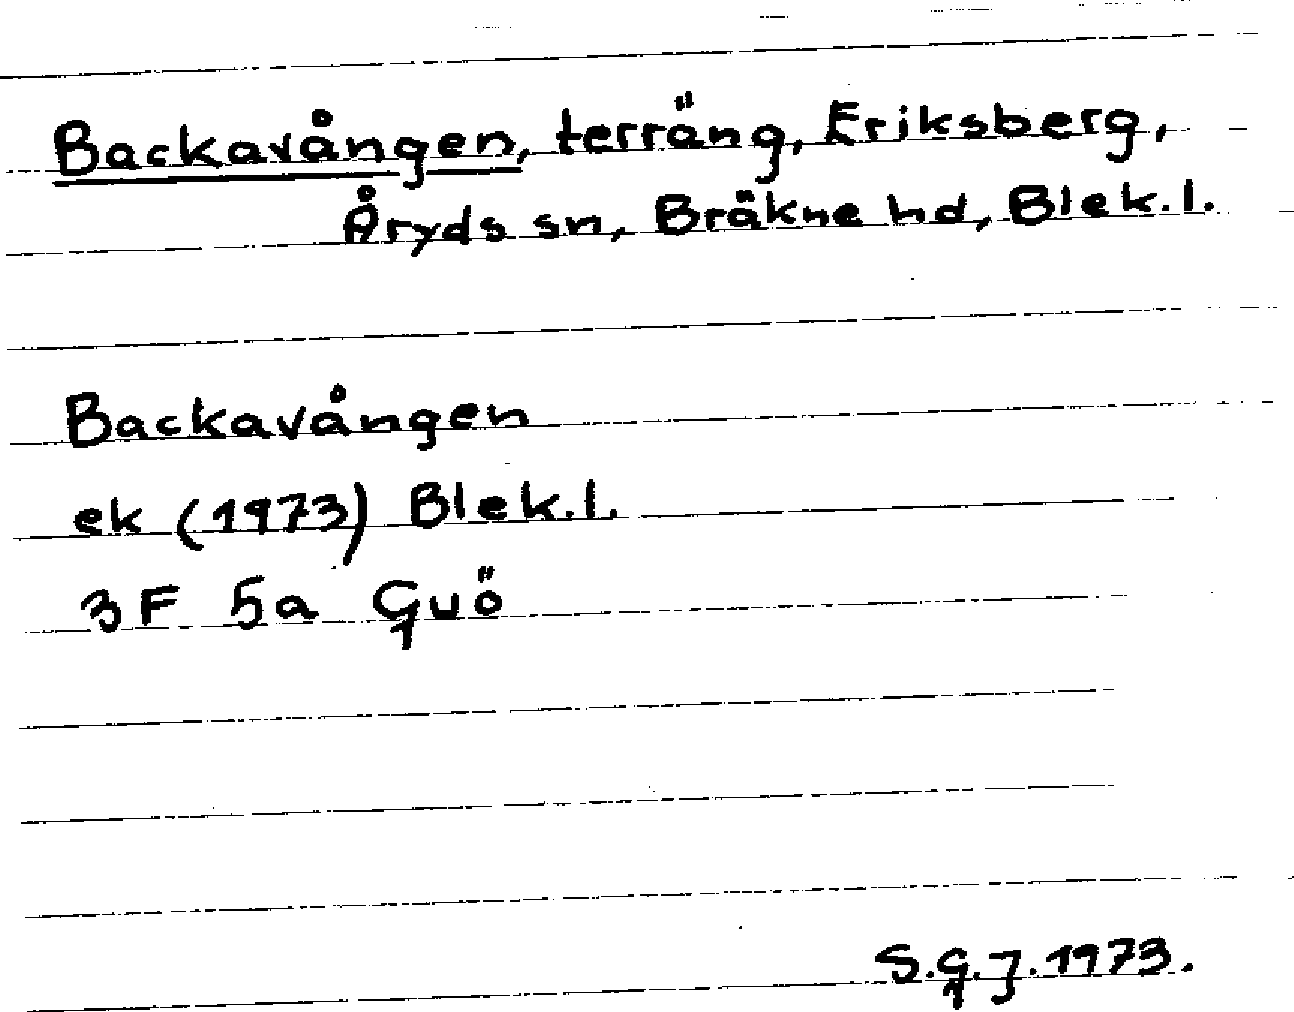 Backavången, terräng, Eriksberg,
Åryds sn, Bräkne hd, Blek.l.
Backavången
ek (1973) Blek.l.
3F 5a Guö
S.G.J. 1973.